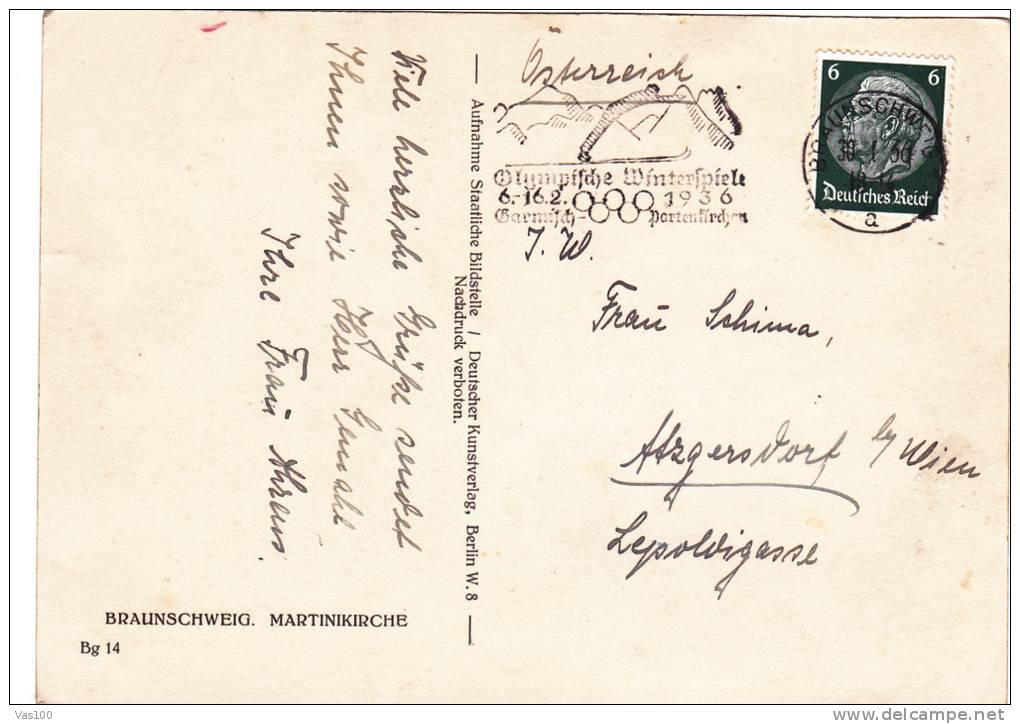 Viele herzliche Grüße sendet
Ihnen sowie Herr Gemahl
Ihre Frau Ahrens.
Aufnahme Staatliche Bildstelle / Deutscher Kunstverlag, Berlin W. 8
Nachdruck verboten.
Österreich
Olympische Winterspiele
6.-16.2. 1936
Garmisch-Partenkirchen
6 6
Deutsches Reich
BRAUNSCHWEIG
30.1.36
a
I. W.
Frau Schima,
Atzgersdorf b/Wien
Lepoldigasse
BRAUNSCHWEIG. MARTINIKIRCHE
Bg 14
Vas100
www.delcampe.net